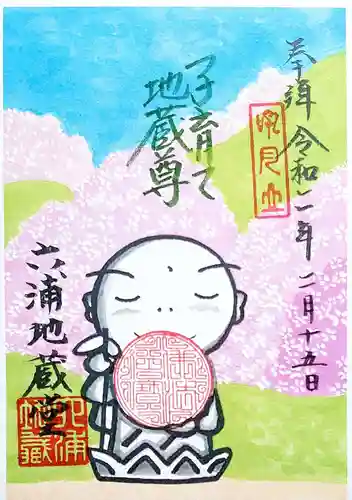 奉拝 令和二年二月十五日
子育て
地蔵尊
六浦地蔵堂
六浦
地蔵